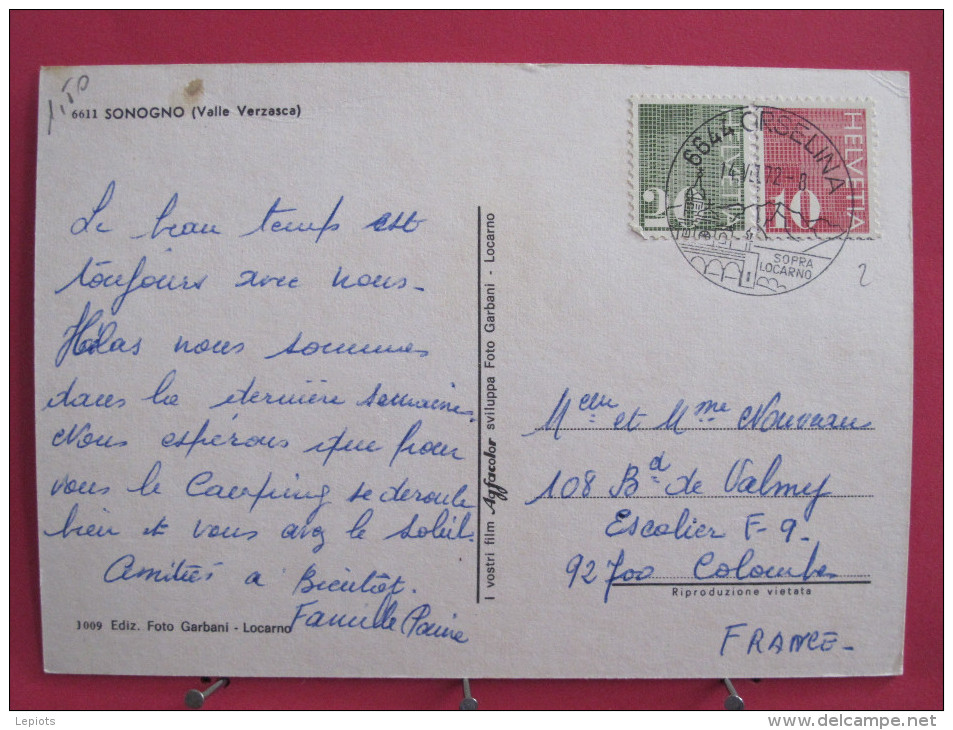 1,50
6611 SONOGNO (Valle Verzasca)
Le beau temps est
toujours avec nous-
Hélas nous sommes
dans la dernière semaine.
Nous espérons que pour
vous le Camping se déroule
bien et vous avez le soleil.
Amitiés a Bientôt.
Famille
1009 Ediz. Foto Garbani - Locarno
I vostri film Agfacolor sviluppa Foto Garbani - Locarno
HELVETIA
20
HELVETIA
10
6644 ORSELINA
14.VII.72-8
SOPRA
LOCARNO
2
et Mme Nouveau
108 Bd de Valmy
Escalier F-9-
92700 Colombes
Riproduzione vietata
FRANCE-
Lepiots
www.delcampe.net